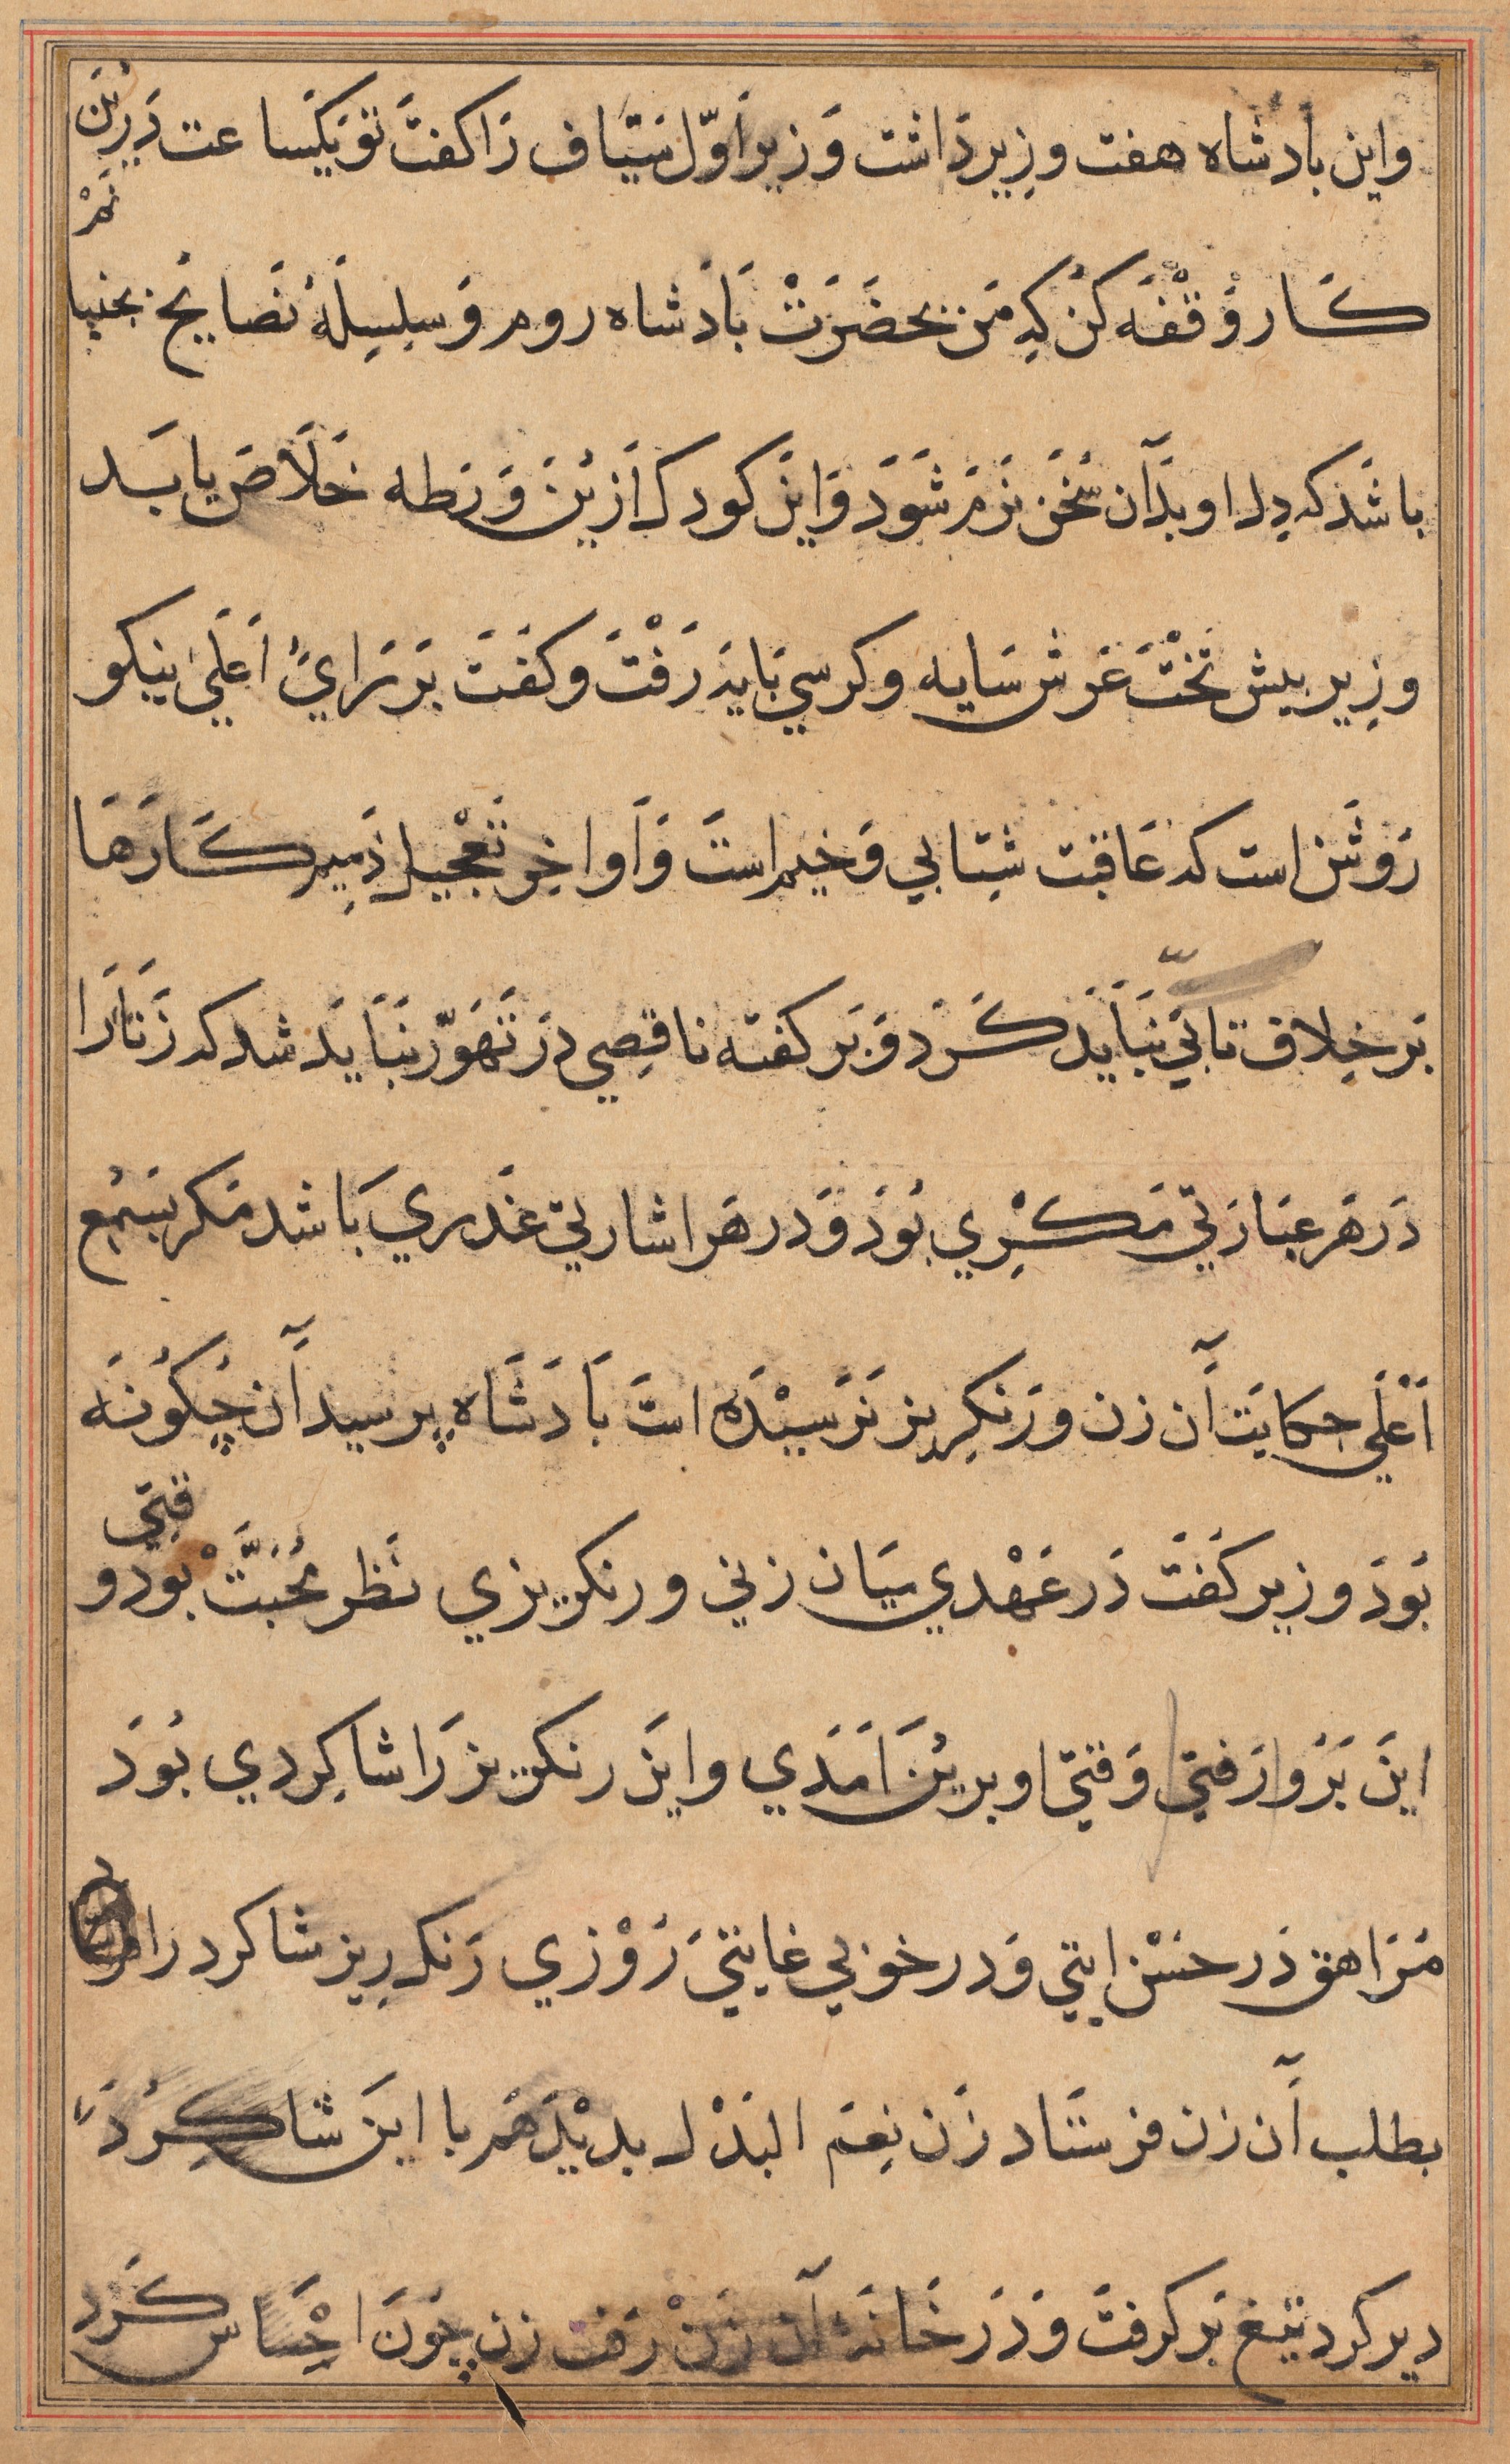 واین بادشاه هفت وزیر داشت وزیر اوّل سیّاف را کفت تو یکساعت درین
کار وقفه کن که من بحضرت بادشاه روم و سلسلهٔ نصایح بجنبا
نم
باشد که دل او بدآن سخن نرم شود و این کودک ازین ورطه خلاص یابد
وزیر بیش تخت عرش سایه و کرسي باید رفت و کفت بر رایِ اعلیٰ نیکو
روشن است که عاقبت شتابي وخیم است و اواخر تعجیل ذمیم کارها
بر خلاف تانّي نباید کرد و بر کفته ناقصي در تهوّر نباید شد که زنانرا
در هر عبارتي مکري بود و در هر اشارتي غدري باشد مکر بسمع
اعلي حکایت آن زن و رنکریز نرسیده است بادشاه پرسید آن چکونه
بود وزیر کفت در عهدي میان زني و رنکریزي نظر محبّت بود و
قتي
این برو رفتي وقتي او برین امدي و این رنکریز را شاکردي بود
مراهق در حسن ایتي و در خوبي غایتي روزي رنکریز شاکرد را
بطلب آن زن فرستاد زن نعم البدل بدید هم با این شاکرد
دیر کرد تیغ بر کرفت و در خانه آن زن رفت زن چون احساس کرد